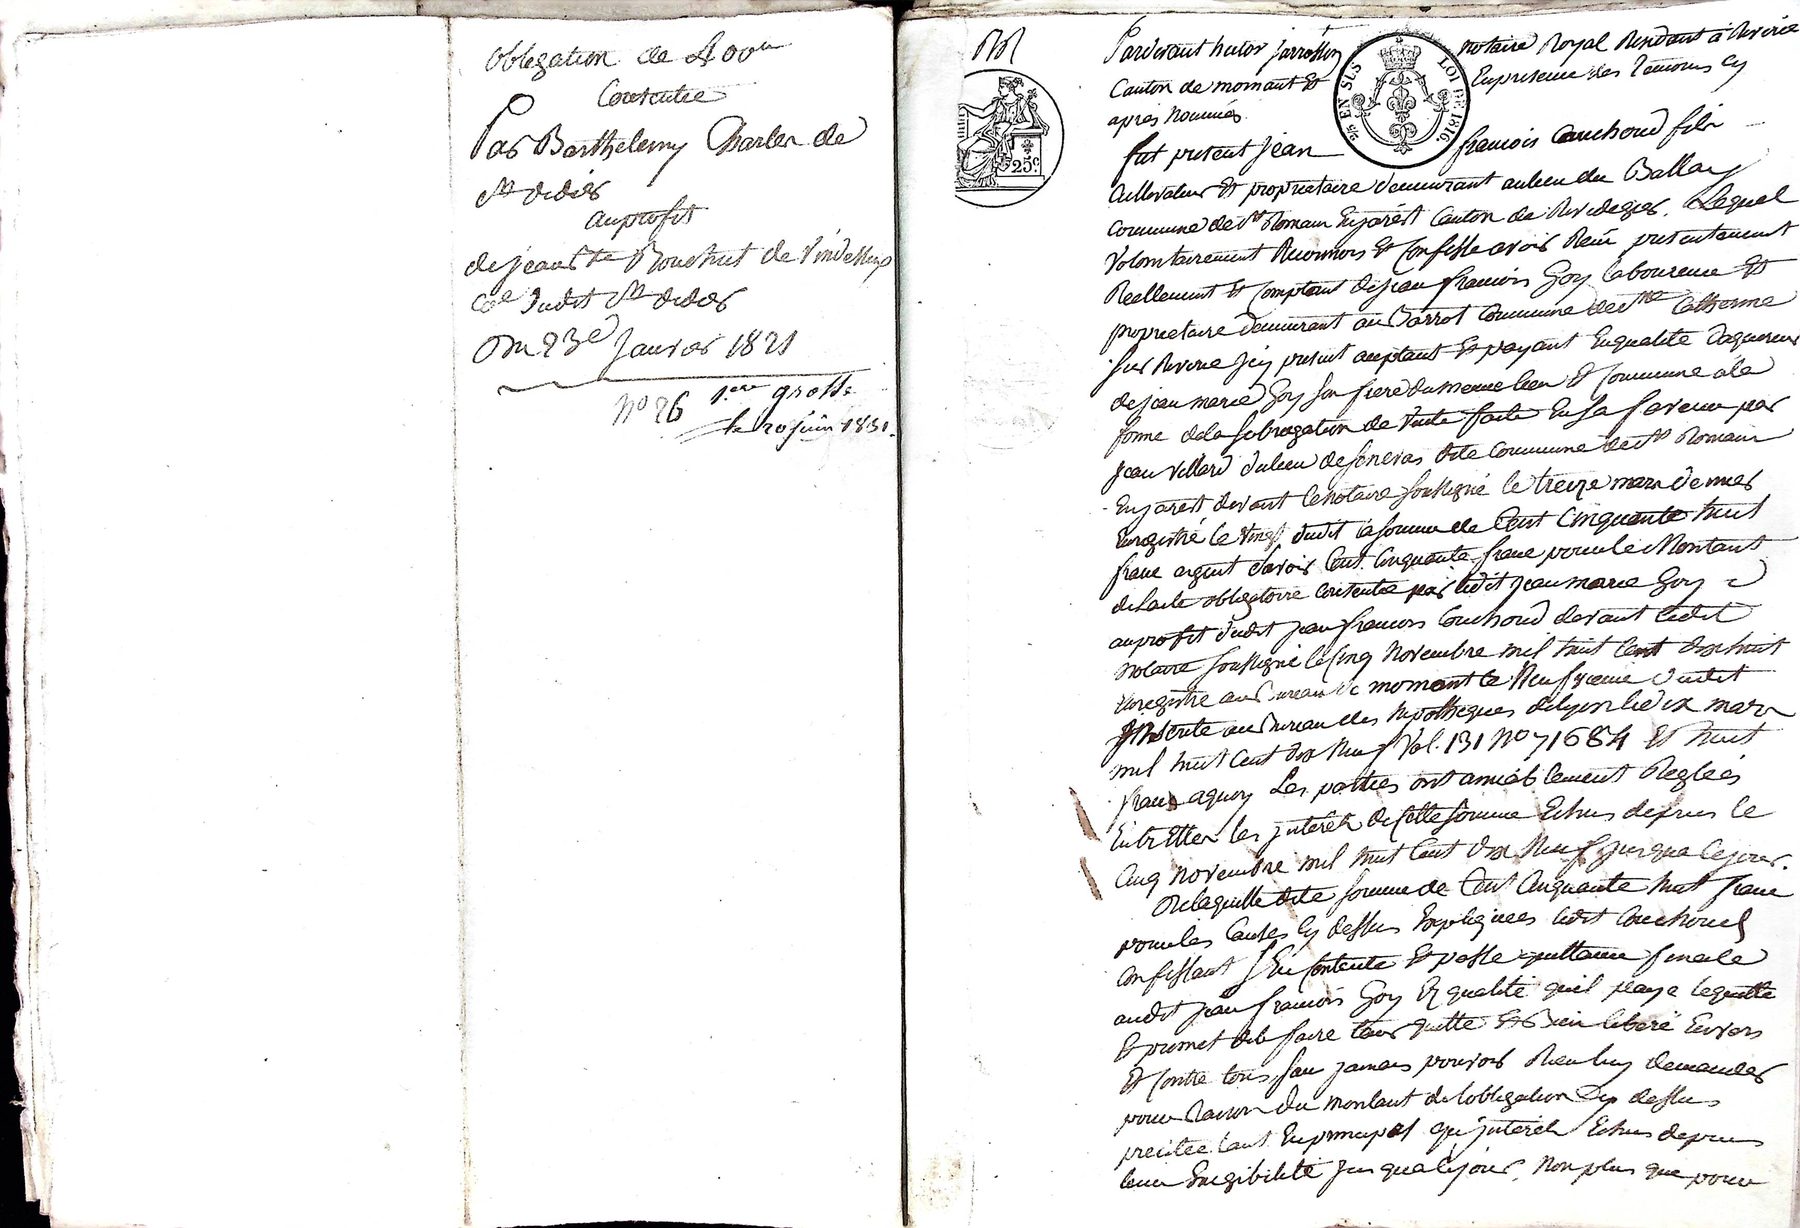 obligation de 400"
Consentie
Par Barthelemy Charles de
St didier
au profit
de jean Bte Bouchut de
Cne dudit St didier
Du 23e Janvier 1821
No 26 1ere grosse
le 20 juin 1831.
25c.
EN SUS LOI DE 1816
Pardevant hutor jarrosson notaire Royal Residant a Riverie
Canton de mornant Et En presence des temoins cy
apres Nommés
fut present Jean francois Couchoud fils
Cultivateur Et proprietaire demeurant au lieu du Ballay
Commune de St Romain En jarest Canton de Rivedegier. Lequel
Volontairement Reconnois Et Confesse avoir Reçu presentement
Reellement Et Comptant de jean francois Goy laboureur Et
proprietaire demeurant au Barrot Commune de Ste Catherine
Sur Riverie jcy present acceptant Et payant En qualité d'acquereur
de jean marie Goy son frere du meme lieu Et Commune a la
forme de la subrogation de Vente faite En sa faveur par
jean Villard du lieu de seneras dite Commune de St Romain
En jarest devant le notaire soussigné le treize mars dernier
Enregistré le Vingt dudit la somme de Cent Cinquante huit
franc argent savoir Cent Cinquante franc pour le Montant
de l'acte obligatoire Consentie par ledit jean marie Goy
au profit dudit jean francois Couchoud devant ledit
Notaire soussigné le Cinq Novembre mil huit Cent dix huit
Enregistré au Bureau de mornant le Neufvieme dudit
Inscrite au Bureau des hypotheques de lyon le dix mars
mil huit Cent dix Neuf Vol. 131 No 71684 Et huit
franc aquoy Les parties ont amiablement Reglées
Entr'Elles les jnterets de Cette somme Echus depuis le
Cinq Novembre mil huit Cent dix Neuf jusqua Ce jour.
De laquelle dite somme de Cent Cinquante huit franc
pour les Causes Cy dessus Expliquees ledit Couchoud
Confessant s'En Contente Et passe quittance finale
audit jean francois Goy En qualité quil paye lequitte
Et promet de le faire tenir quitte Et Bien liberé Envers
Et Contre tous sans jamais pouvoir Rien luy demander
pour Raison du montant de l'obligation cy dessus
precitée tant En principal qu'jnterets Echus depuis
leur Exigibilité jusqua Ce jour, Non plus que pour